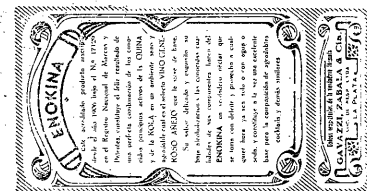 ENOKINA
Este acreditado producto inscripto
desde el año 1906 bajo el N.º 17125
en el Registro Nacional de Marcas y
Patentes, constituye el feliz resultado de
una perfecta combinación de los cono-
cidos principios activos de la QUINA
y de la KOLA en un ambiente sano y
agradable cual es el selecto VINO GENE-
ROSO AÑEJO que le sirve de base.
Su sabor delicado y exquisito no
bajo
lidades de sus componentes hacen del
ENOKINA un verdadero néctar que
se toma con deleite y provecho a cual-
quier hora ya sea solo o con agua o
soda, y constituye a la vez una excelente
base para la composición de agradables
cocktails y demás similares
GAVAZZI, ZABALA & Cía.
LA PLATA